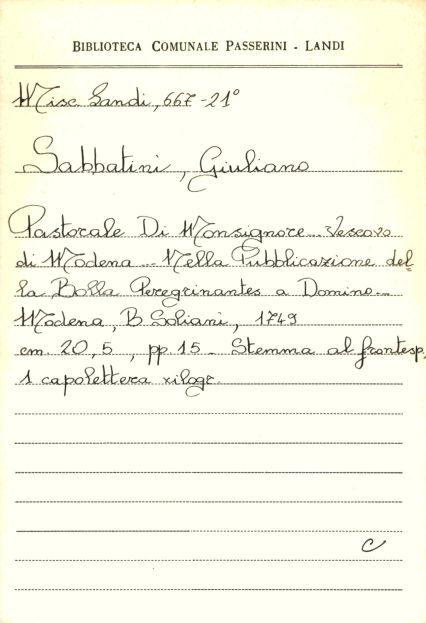 BIBLIOTECA COMUNALE PASSERINI - LANDI
Misc. Landi, 667-21°
Sabbatini, Giuliano
Pastorale Di Monsignore... Vescovo
di Modena... Nella Pubblicazione del=
la Bolla Peregrinantes a Domino...
Modena, B. Soliani, 1749
cm. 20,5, pp. 15. Stemma al frontesp.
1 capolettera xilogr.
C